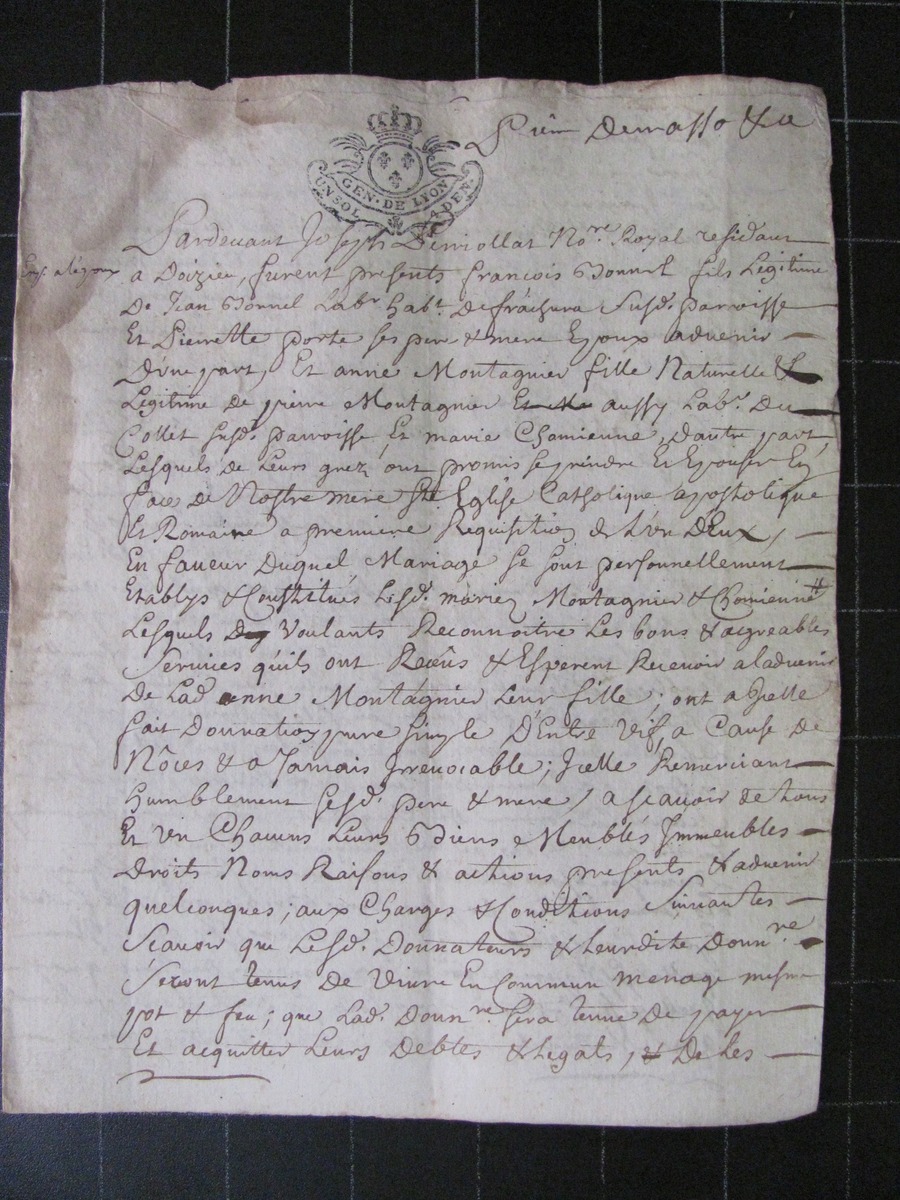 GEN. DE LYON
UN SOL
Pardevant Joseph Demollat No.re Royal residant
a Doizieu, furent presents françois Bonnel fils Legitime
De Jean Bonnel Lab.r hab.t De frachura Susd. parroisse
Et Pierrette porte ses pere & mere Epoux advenir
D'une part, Et anne Montagnier fille Naturelle &
Legitime de pierre Montagnier aussy Lab.r Du
Collet susd. parroisse Et marie Chomienne, Dautre part,
Lesquels de Leurs grez ont promis se prendre Et Epouser En
face de Nostre mere Ste Eglise Catholique apostolique
Et Romaine a premiere Requisition de L'un D'Eux,
En faveur Duquel Mariage se sont personnellement
Etablys & Constitués Lesd. mariez Montagnier & Chomienne
Lesquels Voulants Reconnoitre Les bons & agreables
Services quils ont Reçûs & Esperent Recevoir aladvenir
De Lad. anne Montagnier Leur fille; ont a Jcelle
fait Donnation pure simple D'Entre Vifs a Cause de
Nôces & a Jamais Jrrevocable; Jcelle Remerciant
humblement sesd. pere & mere, a scavoir de tous
Et Un Chacuns Leurs Biens Meubles Jmmeubles
Droits Noms Raisons & actions presents & advenir
quelconques; aux Charges & Conditions Suivantes
Scavoir que Lesd. Donnateurs & Leurdite Donn.re
Seront tenus De Vivre En Commun menage mesme
pot & feu; que Lad. Donn.re Sera tenue De payer
Et acquitter Leurs Debtes & Legats, De Les